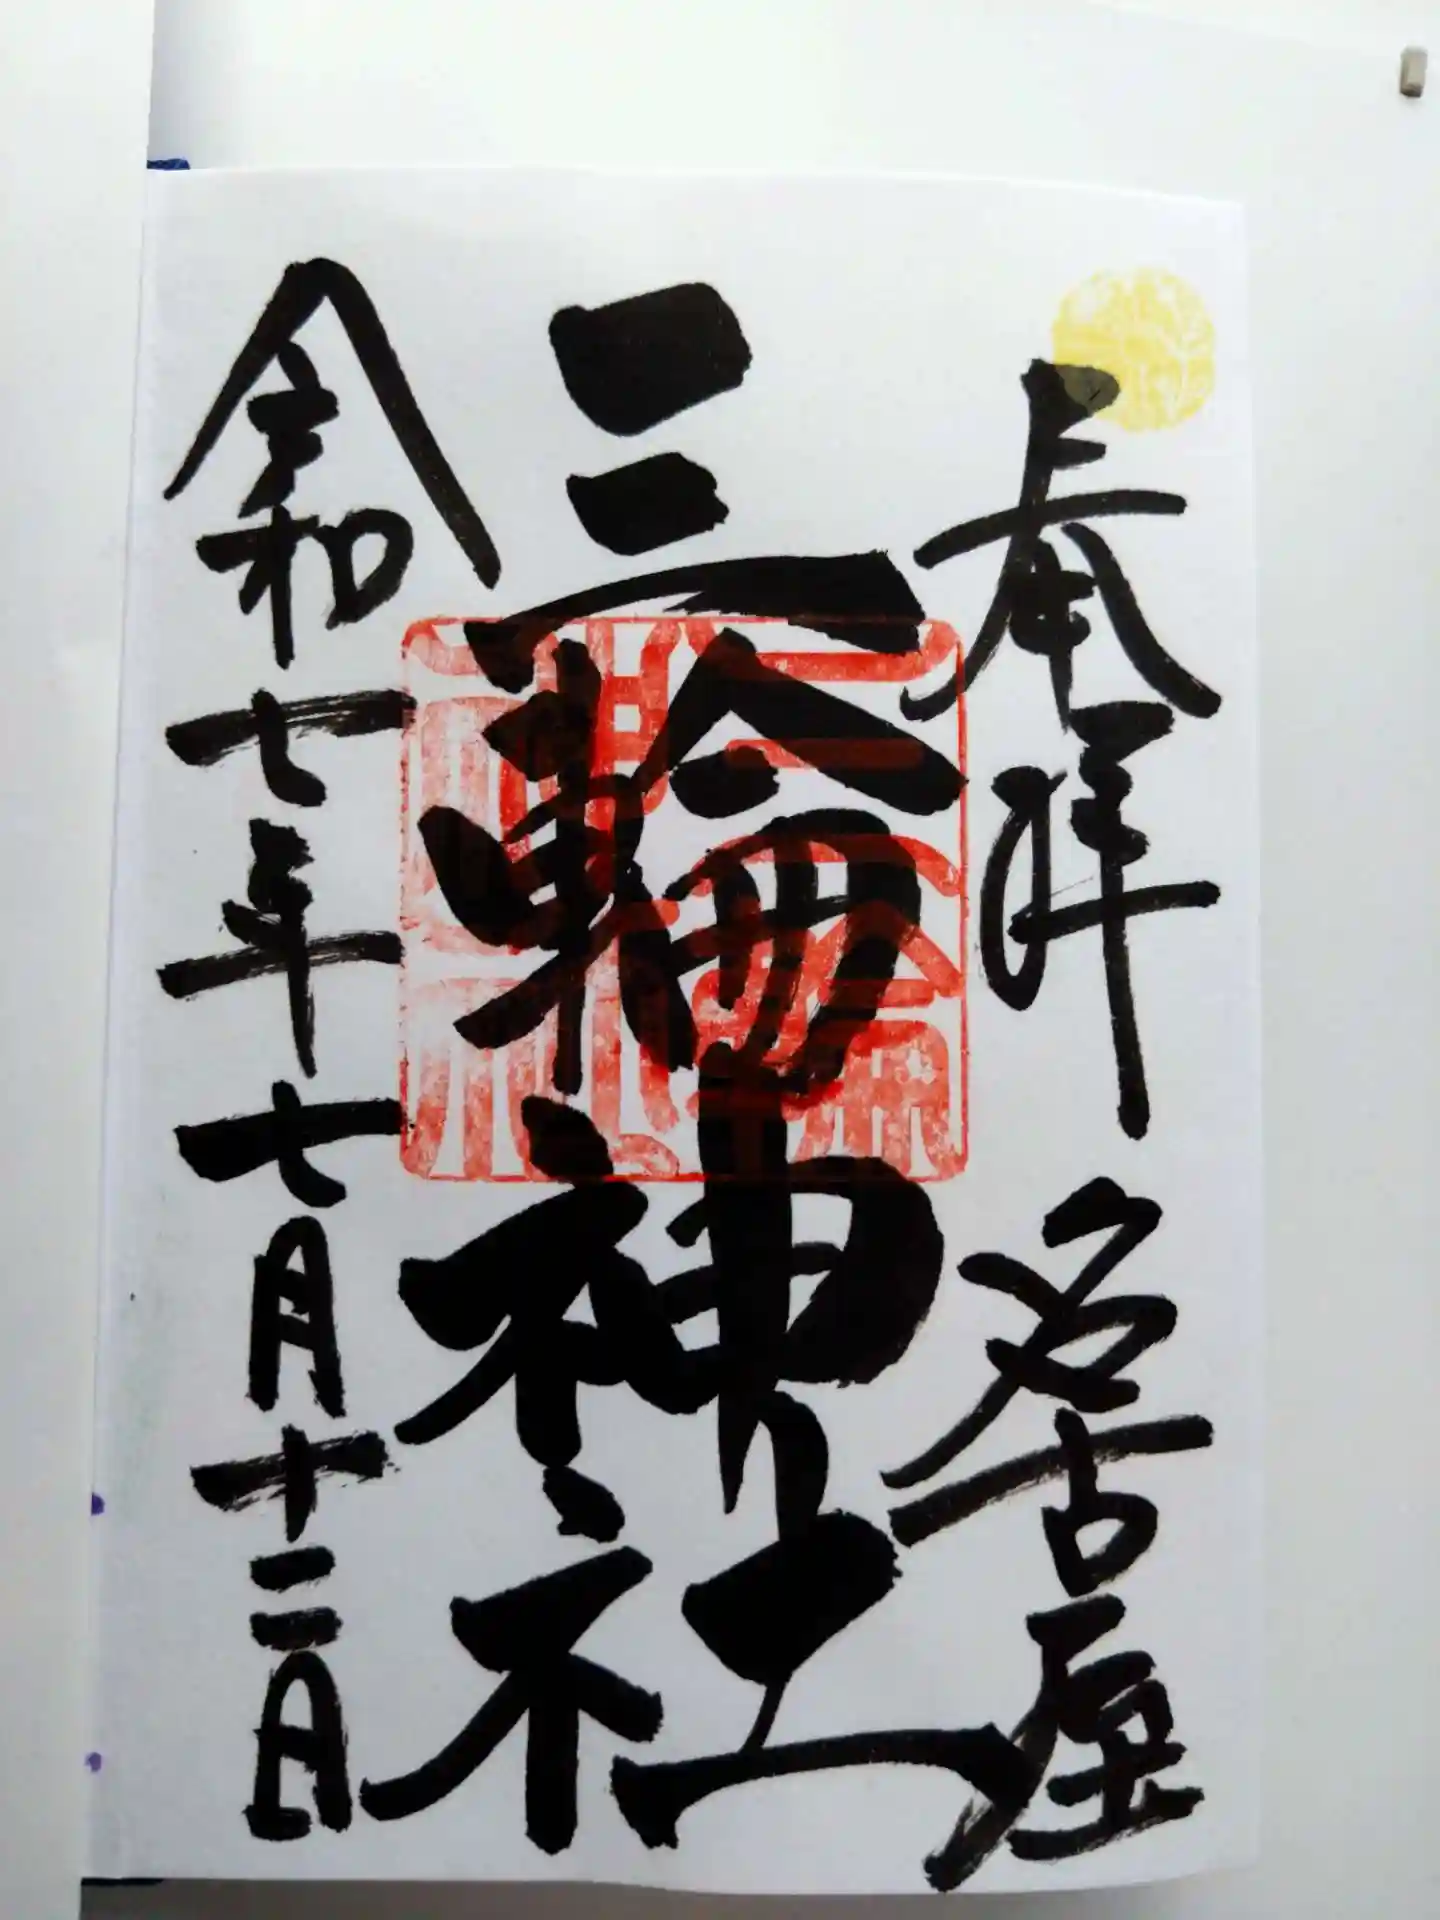 奉拝 名古屋
三輪神社
令和七年七月十二日